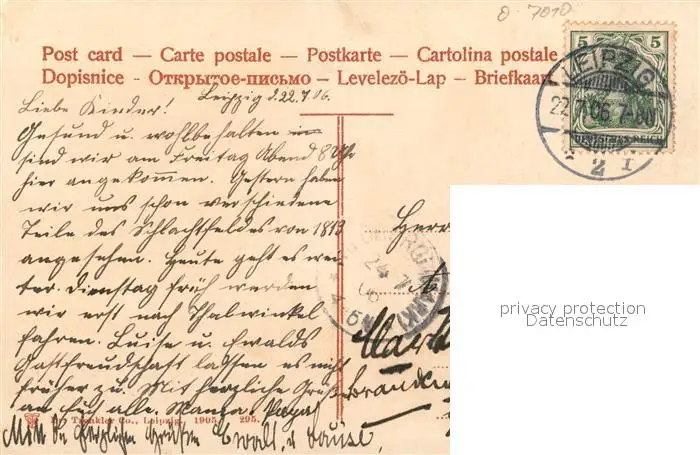 o. 7010
Post card — Carte postale — Postkarte — Cartolina postale
Dopisnice - Открытое-письмо - Levelezö-Lap - Briefkaart
5 5
DEUTSCHES REICH
LEIPZIG
22.7.06.7-8
2 I
Leipzig d. 22.7.06.
Liebe Kinder!
Gesund u. wohlbehalten
sind wir am Freitag Abend 8 Uhr
hier angekommen. Gestern haben
wir uns schon verschiedene
Teile des Schlachtfeldes von 1813
angesehen. Heute geht es wei-
ter. Dienstag früh werden
wir erst nach Thalwinkel
fahren. Luise u. Ewalds
Gastfreundschaft lassen es nicht
früher zu. Mit herzliche Grüße
an Euch alle. Mama. Papa
Mit den herzlichen Grüßen Ewald u. Louise.
Herr
24 7
06
(MARK)
Mark
Branden
Dr. Trenkler Co., Leipzig, 1905. 295.
privacy protection
Datenschutz